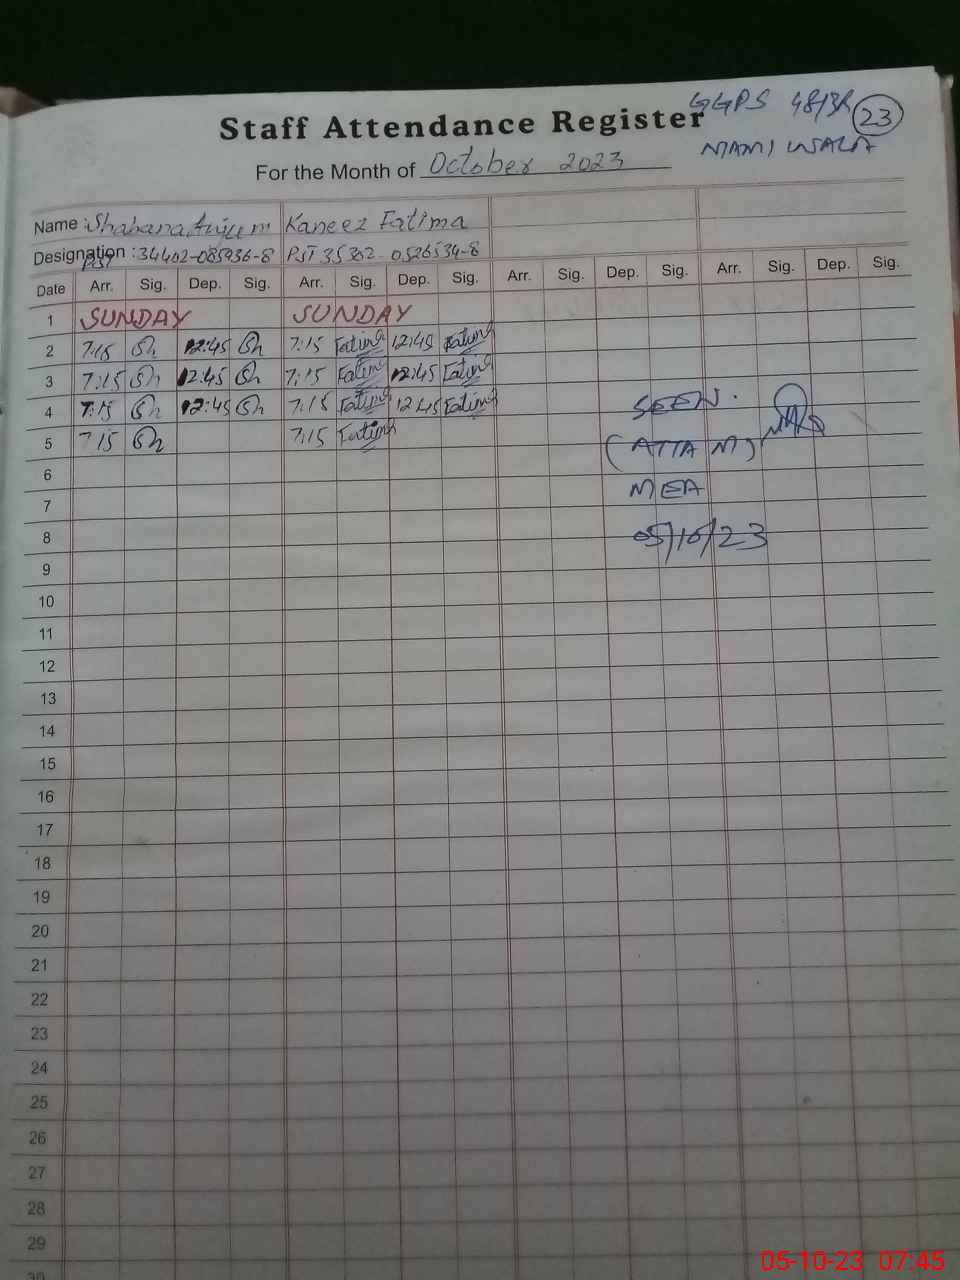 GGPS 48/3R 23
Staff Attendance Register
MAMI WALA
For the Month of October 2023
Name : Shabana Anjum Kaneez Fatima
Designation : 34402-085936-8 PST 35302-0526534-8
PST
Date Arr. Sig. Dep. Sig. Arr. Sig. Dep. Sig. Arr. Sig. Dep. Sig. Arr. Sig. Dep. Sig.
1 SUNDAY SUNDAY
2 7:15 Sh 12:45 Sh 7:15 Fatima 12:45 Fatima
3 7:15 Sh 12:45 Sh 7:15 Fatima 12:45 Fatima
4 7:15 Sh 12:45 Sh 7:15 Fatima 12:45 Fatima SEEN.
5 7:15 Sh 7:15 Fatima (ATTA M)
6 MEA
7
8 05/10/23
9
10
11
12
13
14
15
16
17
18
19
20
21
22
23
24
25
26
27
28
29
30
05-10-23 07:45